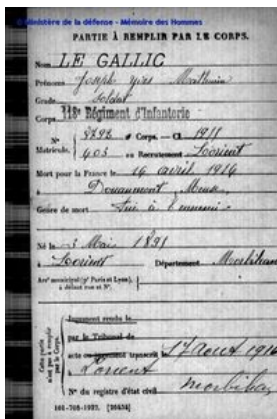 © Ministère de la défense - Mémoire des Hommes
PARTIE À REMPLIR PAR LE CORPS.
Nom LE GALLIC
Prénoms Joseph Yves Mathurin
Grade Soldat
Corps 118e Régiment d'Infanterie
N° 8292 au Corps. — Cl. 1911
Matricule. 403 au Recrutement Lorient
Mort pour la France le 14 avril 1916
à Douaumont Meuse
Genre de mort Tué à l'ennemi
Né le 3 Mai 1891
à Lorient Département Morbihan
Arrt municipal (pr Paris et Lyon),
à défaut rue et N°.
Cette partie
n'est pas à remplir
par le Corps.
Jugement rendu le
par le Tribunal de
acte ou jugement transcrit le 17 aout 1916
à Lorient
Morbihan
N° du registre d'état civil
101-708-1922. [26434]